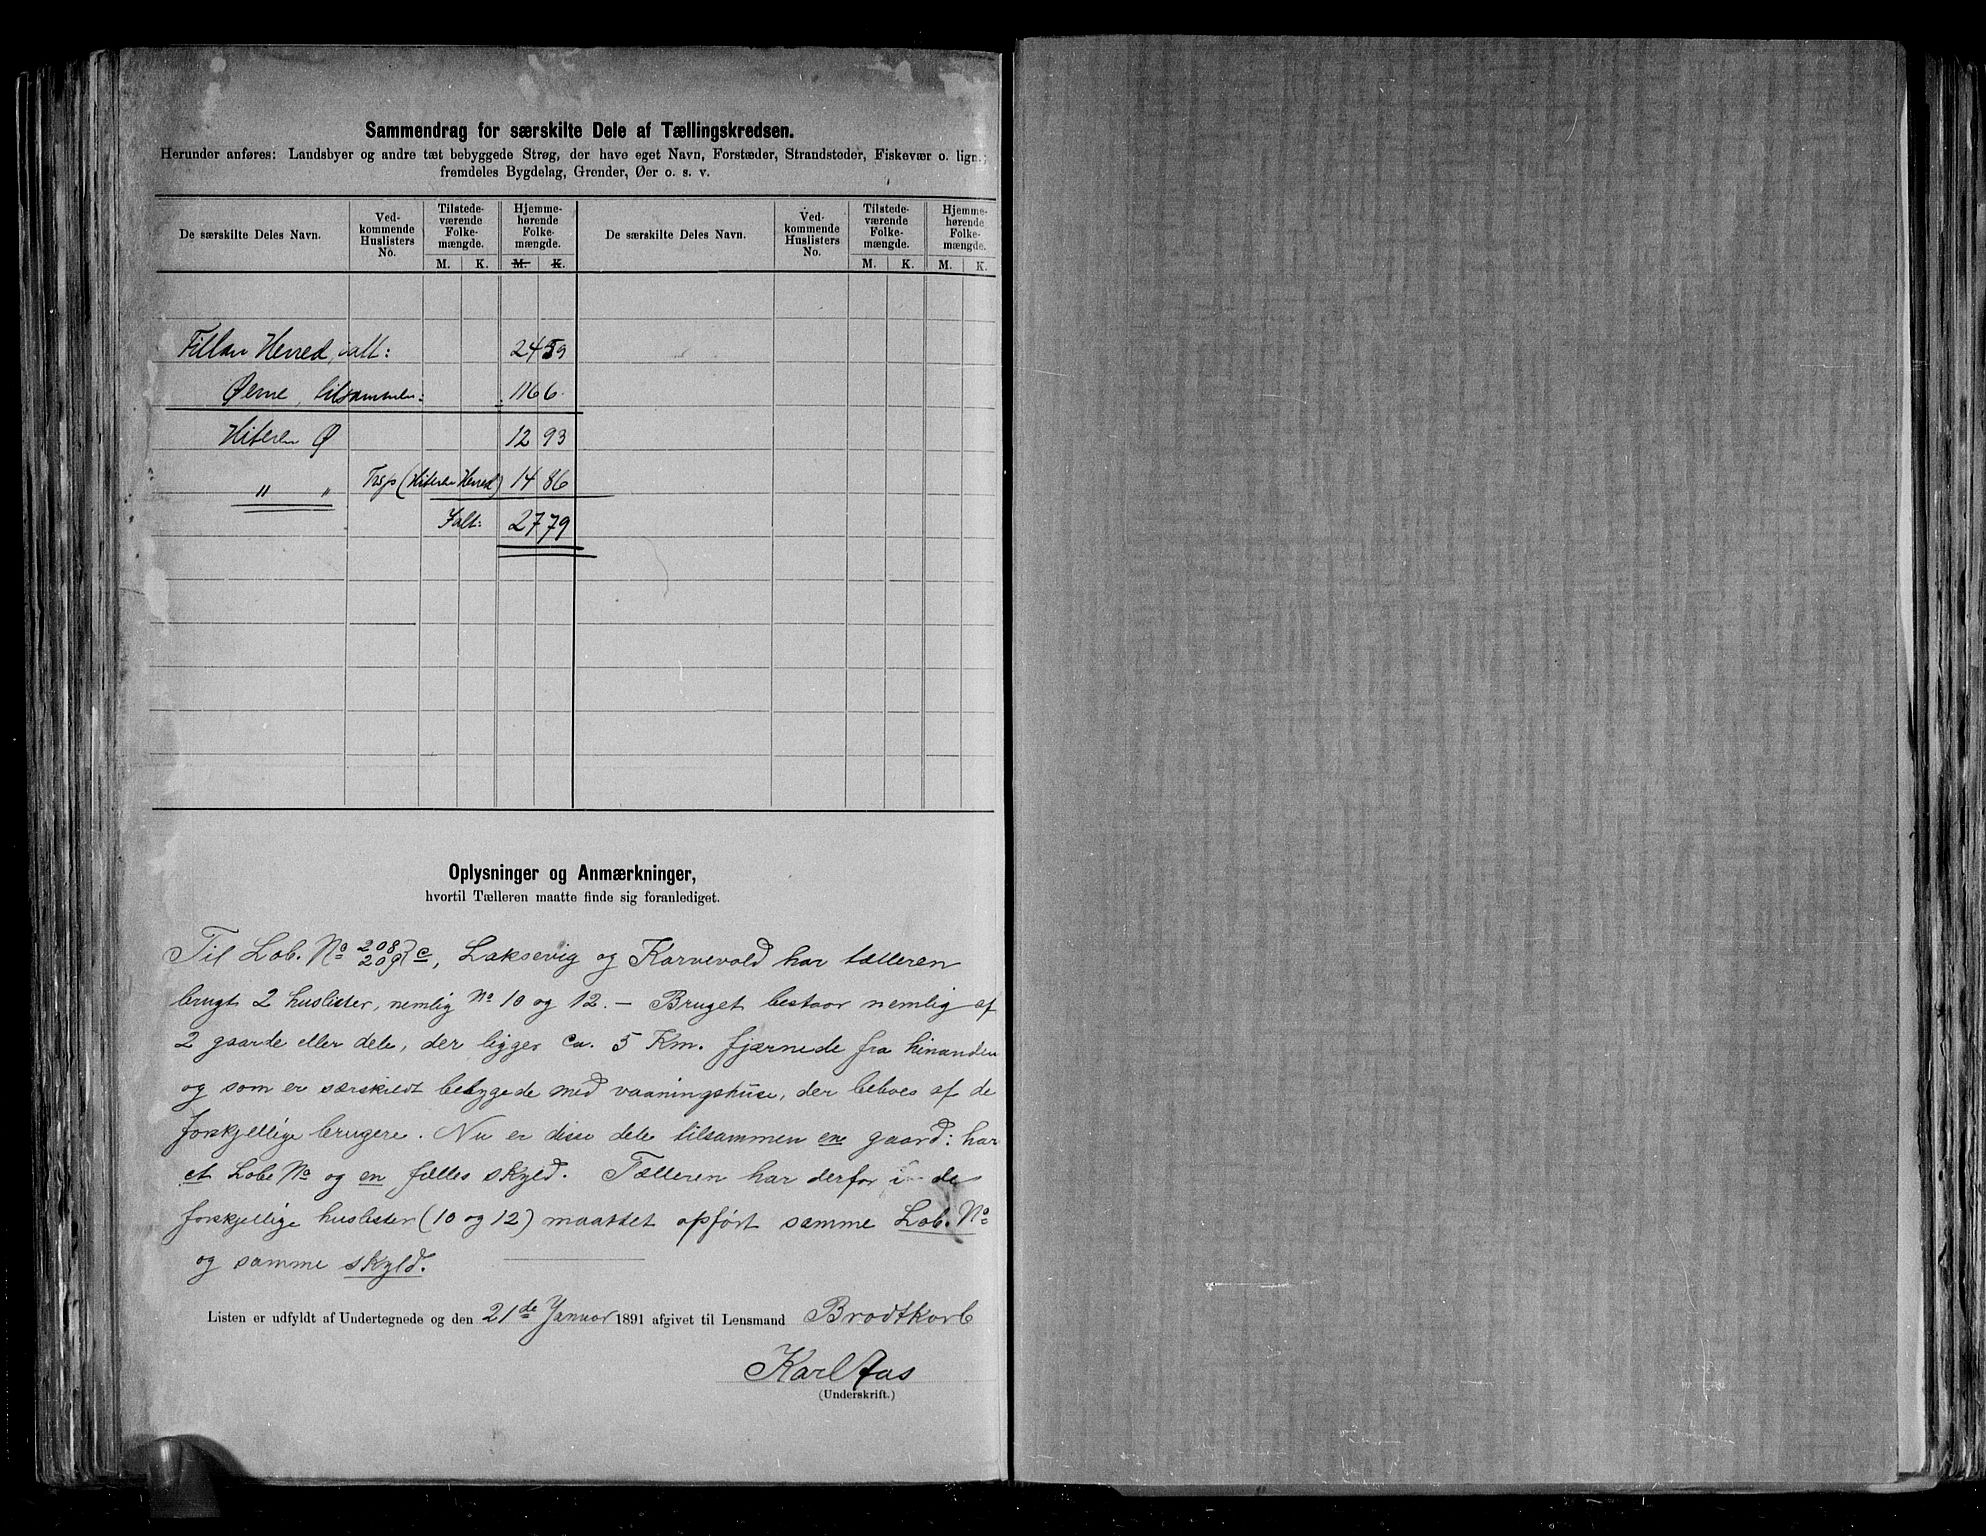 Sammendrag for særskilte Dele af Tællingskredsen.
Herunder anføres: Landsbyer og andre tæt bebyggede Strøg, der have eget Navn, Forstæder, Strandsteder, Fiskevær o. lign.;
fremdeles Bygdelag, Grender, Øer o. s. v.
De særskilte Deles Navn. Ved-kommende Huslisters No. Tilstede-værende Folke-mængde. Hjemme-hørende Folke-mængde. De særskilte Deles Navn. Ved-kommende Huslisters No. Tilstede-værende Folke-mængde. Hjemme-hørende Folke-mængde.
M. K. M. K. M. K. M. K.
Fillan Herred, ialt: 2459
Øerne, tilsammen: 1166
Hiteren Ø 1293
" " (Hiteren Herred) 1486
Ialt: 2779
Oplysninger og Anmærkninger,
hvortil Tælleren maatte finde sig foranlediget.
Til Lob. No 208 209 } c, Laksevig og Karvevold har tælleren
brugt 2 huslister, nemlig No 10 og 12. – Bruget bestaar nemlig af
2 gaarde eller dele, der ligger ca. 5 Km. fjærnede fra hinanden
og som er særskildt bebygede med vaaningshuse, der beboes af de
forskjellige brugere. Nu er disse dele tilsammen en gaard: har
et Lobe No og en fælles skyld. Tælleren har derfor i de
forskjellige huslister (10 og 12) maattet opført samme Lob. No
og samme skyld.
Listen er udfyldt af Undertegnede og den 21de Januar 1891 afgivet til Lensmand Brodtkorb
Karl Aas
(Underskrift.)